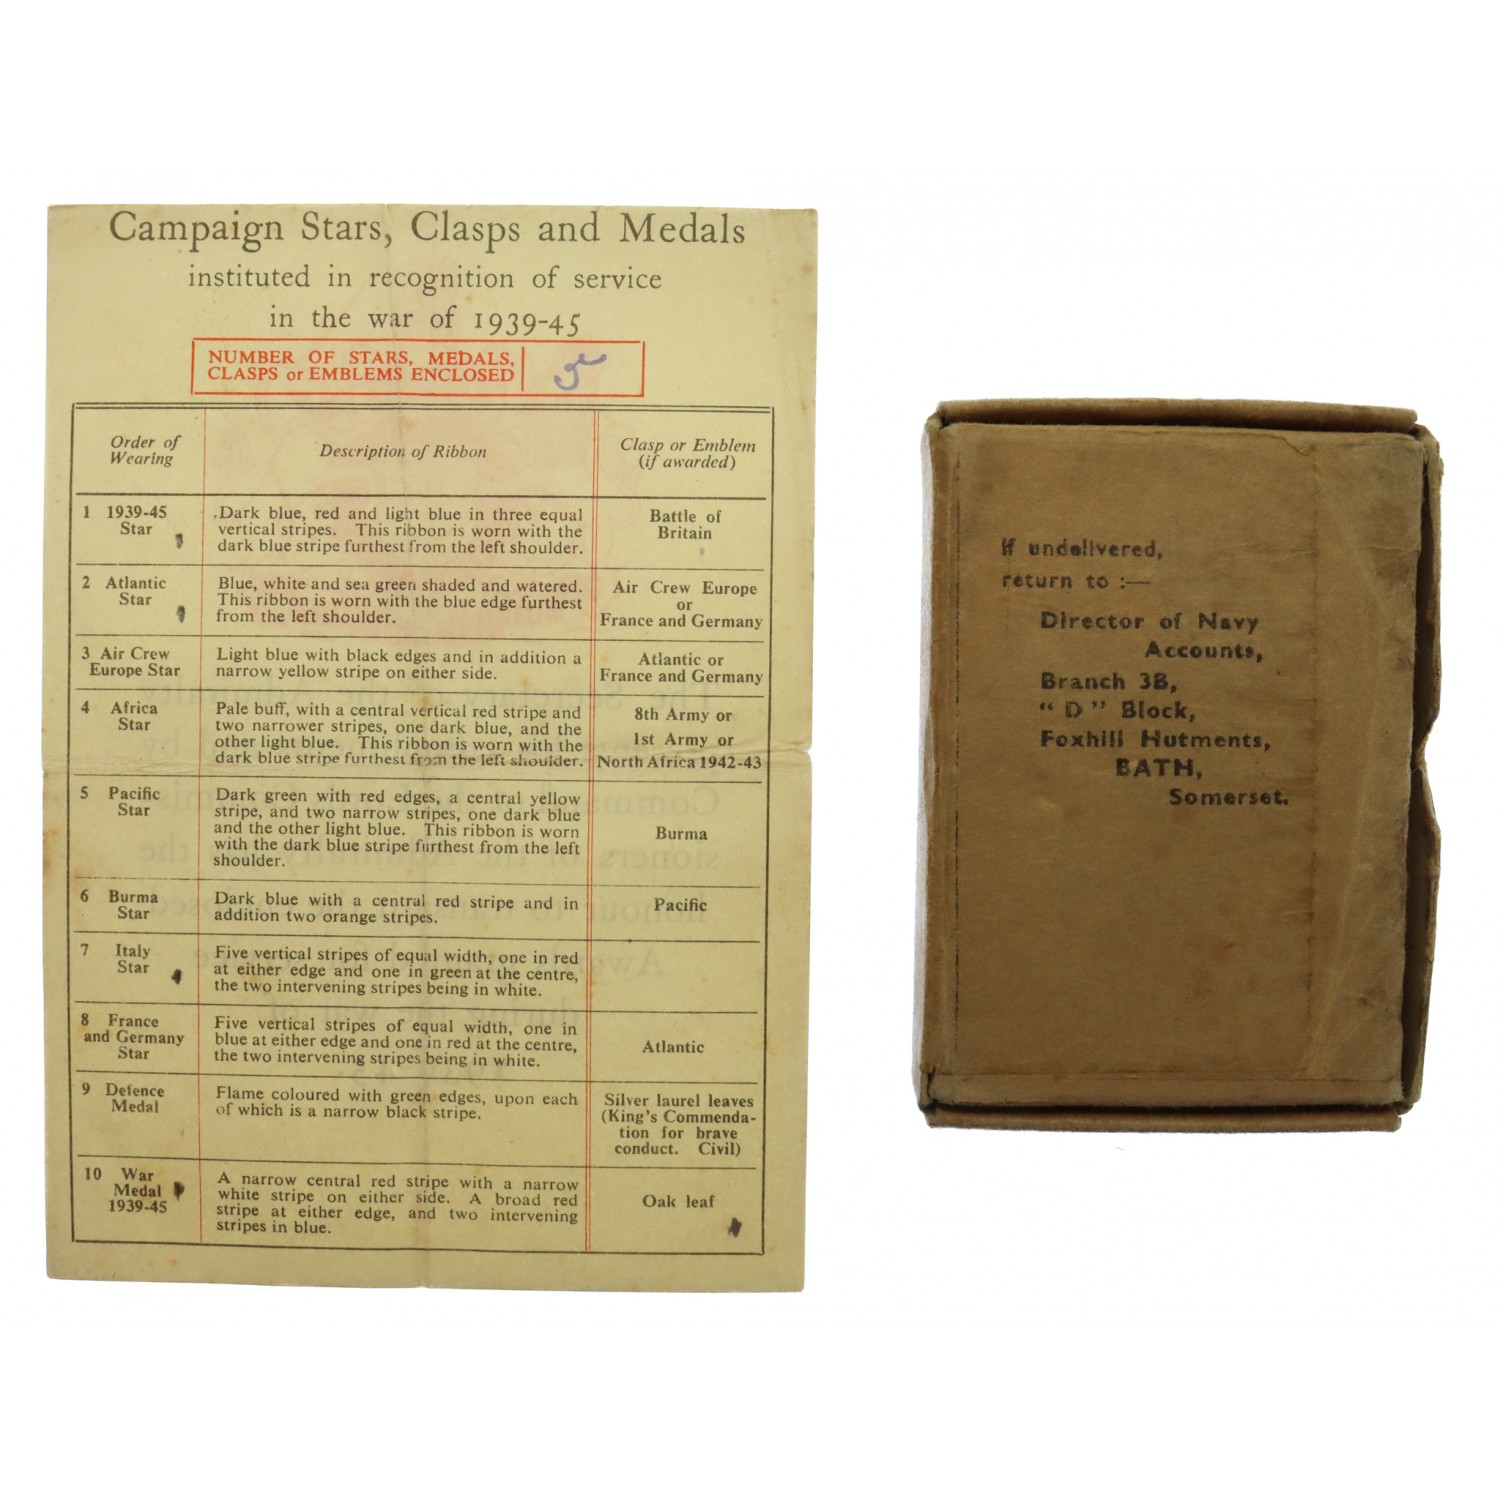 Campaign Stars, Clasps and Medals
instituted in recognition of service
in the war of 1939-45
NUMBER OF STARS, MEDALS,
CLASPS or EMBLEMS ENCLOSED
5
Order of
Wearing
Description of Ribbon
Clasp or Emblem
(if awarded)
1 1939-45
Star
Dark blue, red and light blue in three equal
vertical stripes. This ribbon is worn with the
dark blue stripe furthest from the left shoulder.
Battle of
Britain
2 Atlantic
Star
Blue, white and sea green shaded and watered.
This ribbon is worn with the blue edge furthest
from the left shoulder.
Air Crew Europe
or
France and Germany
3 Air Crew
Europe Star
Light blue with black edges and in addition a
narrow yellow stripe on either side.
Atlantic or
France and Germany
4 Africa
Star
Pale buff, with a central vertical red stripe and
two narrower stripes, one dark blue, and the
other light blue. This ribbon is worn with the
dark blue stripe furthest from the left shoulder.
8th Army or
1st Army or
North Africa 1942-43
5 Pacific
Star
Dark green with red edges, a central yellow
stripe, and two narrow stripes, one dark blue
and the other light blue. This ribbon is worn
with the dark blue stripe furthest from the left
shoulder.
Burma
6 Burma
Star
Dark blue with a central red stripe and in
addition two orange stripes.
Pacific
7 Italy
Star
Five vertical stripes of equal width, one in red
at either edge and one in green at the centre,
the two intervening stripes being in white.
8 France
and Germany
Star
Five vertical stripes of equal width, one in
blue at either edge and one in red at the centre,
the two intervening stripes being in white.
Atlantic
9 Defence
Medal
Flame coloured with green edges, upon each
of which is a narrow black stripe.
Silver laurel leaves
(King's Commenda-
tion for brave
conduct. Civil)
10 War
Medal
1939-45
A narrow central red stripe with a narrow
white stripe on either side. A broad red
stripe at either edge, and two intervening
stripes in blue.
Oak leaf
If undelivered,
return to :—
Director of Navy
Accounts,
Branch 3B,
"D" Block,
Foxhill Hutments,
BATH,
Somerset.